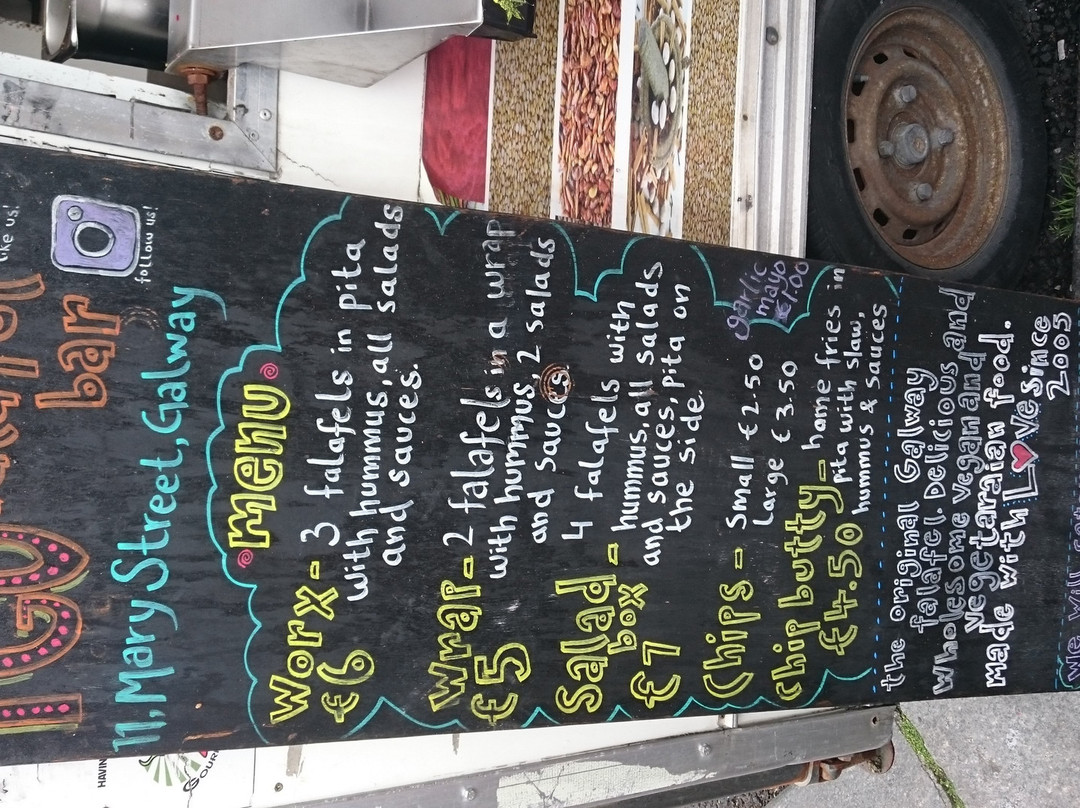 bar
like us!
follow us!
11, Mary Street, Galway
menu
Worx - 3 falafels in pita
€6 with hummus, all salads
and sauces.
Wrap - 2 falafels in a wrap
€5 with hummus, 2 salads
and sauces
Salad box - 4 falafels with
€7 hummus, all salads
and sauces, pita on
the side.
Chips - Small € 2.50
Large € 3.50
garlic
mayo
€1.00
chip butty - home fries in
€4.50 pita with slaw,
hummus & sauces
the original Galway
falafel. Delicious
wholesome vegan and
vegetarian food.
made with Love Since
2005
we will
HAVIN
GOUR